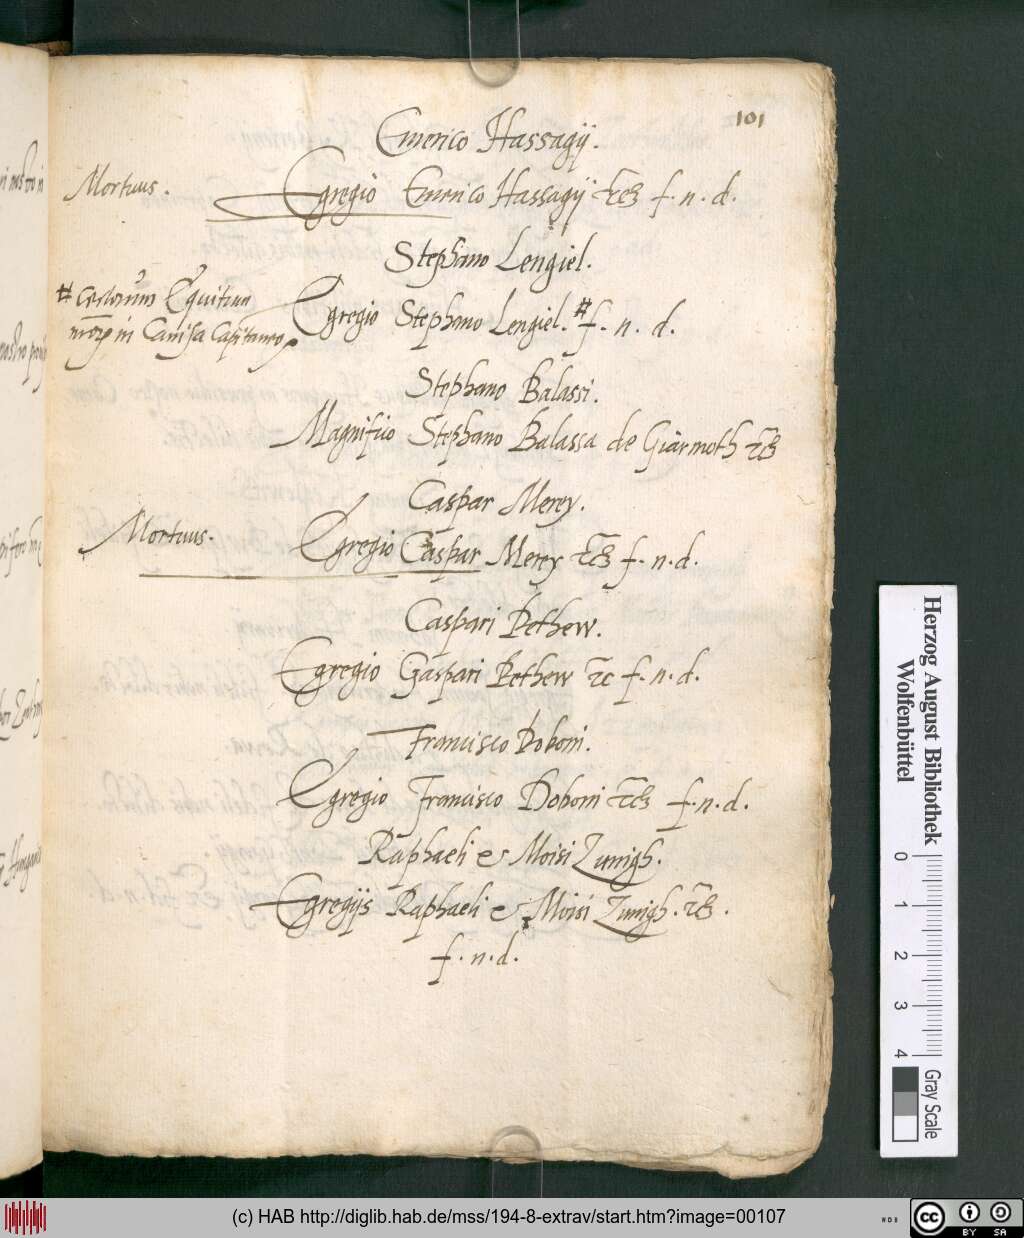 101
Emerico Hassagÿ.
Mortuus.
Egregio Emerico Hassagÿ etc f. n. d.
Stephano Lengiel.
Egregio Stephano Lengiel. # f. n. d.
# certorum Equitum
in Canisa Capitaneo
Stephano Balassi.
Magnifico Stephano Balassa de Giarmoth etc
Caspar Merey.
Mortuus.
Egregio Caspar Merey etc f. n. d.
Caspari Pethew.
Egregio Gaspari Pethew etc f. n. d.
Francisco Doboni.
Egregio Francisco Doboni etc f. n. d.
Raphaeli et Moisi Zunigh.
Egregijs Raphaeli et Moisi Zunigh. etc.
f. n. d.
Herzog August Bibliothek
Wolfenbüttel
0 1 2 3 4
Gray Scale
(c) HAB http://diglib.hab.de/mss/194-8-extrav/start.htm?image=00107
WDB
cc
BY SA